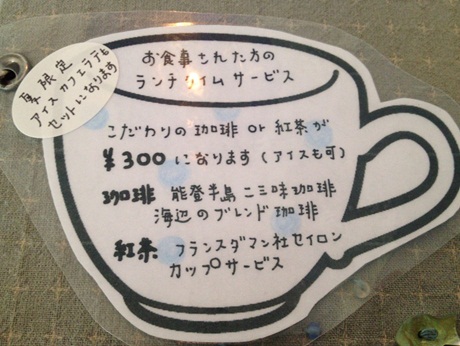 夏限定
アイスカフェラテも
セットになります
お食事された方の
ランチタイムサービス
こだわりの珈琲 or 紅茶が
¥300 になります(アイスも可)
珈琲 能登半島 二三味珈琲
海辺のブレンド珈琲
紅茶 フランスダマン社セイロン
カップサービス